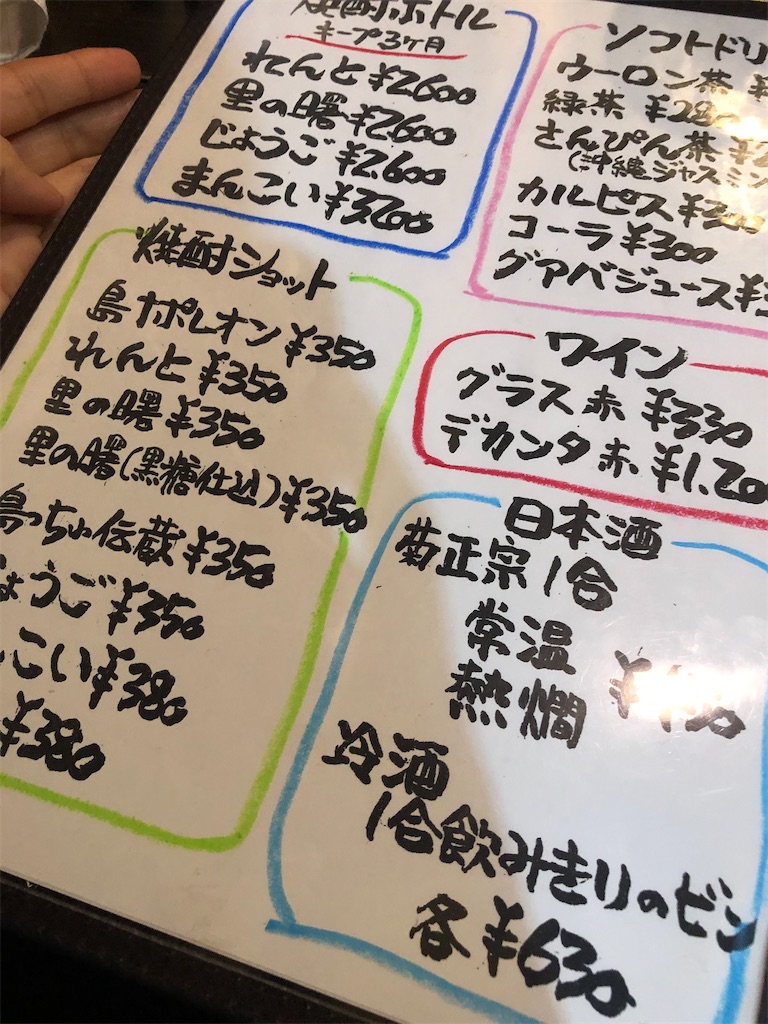 焼酎ボトル
キープ3ヶ月
れんと ¥2600
里の曙 ¥2,600
じょうご ¥2,600
まんこい ¥3200
ソフトドリ
ウーロン茶 ¥
緑茶 ¥280
さんぴん茶 ¥2
(沖縄ジャスミン
カルピス ¥300
コーラ ¥300
グアバジュース ¥3
焼酎ショット
島ナポレオン ¥350
れんと ¥350
里の曙 ¥350
里の曙(黒糖仕込) ¥350
島っちゅ伝蔵 ¥350
ょうご ¥350
こい ¥380
¥380
ワイン
グラス 赤 ¥330
デカンタ 赤 ¥1,20
日本酒
菊正宗 1合
常温
熱燗
冷酒
1合飲みきりのビン
各 ¥630